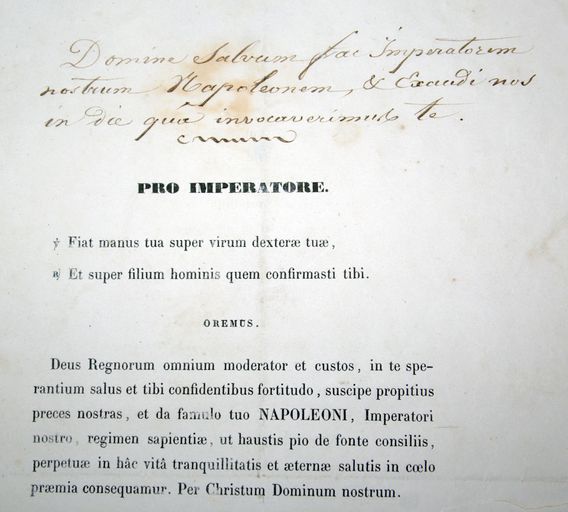 Domine Salvum fac Imperatorem
nostrum Napoleonem, & Exaudi nos
in die quâ invocaverimus te.
PRO IMPERATORE.
℣ Fiat manus tua super virum dexteræ tuæ,
℟ Et super filium hominis quem confirmasti tibi.
OREMUS.
Deus Regnorum omnium moderator et custos, in te spe-
rantium salus et tibi confidentibus fortitudo, suscipe propitius
preces nostras, et da famulo tuo NAPOLEONI, Imperatori
nostro, regimen sapientiæ, ut haustis pio de fonte consiliis,
perpetuæ in hâc vitâ tranquillitatis et æternæ salutis in cœlo
præmia consequamur. Per Christum Dominum nostrum.